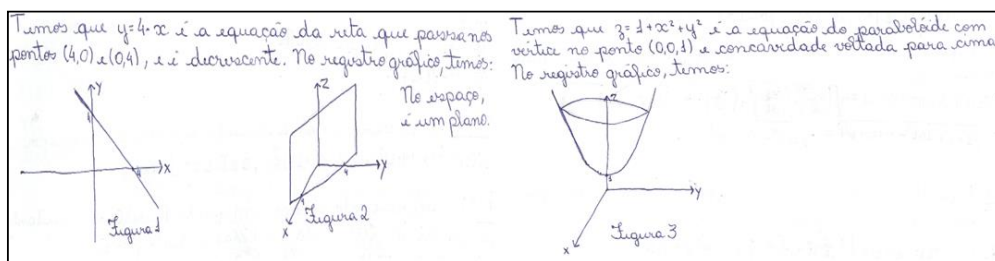 Temos que y=4-x é a equação da reta que passa nos
pontos (4,0) e (0,4), e é decrescente. No registro gráfico, temos:
No espaço,
é um plano.
Y
4
X
4
Figura 1
Z
Y
4
4
X
Figura 2
Temos que z=1+x²+y² é a equação do parabolóide com
vértice no ponto (0,0,1) e concavidade voltada para cima
No registro gráfico, temos:
Z
1
Y
X
Figura 3